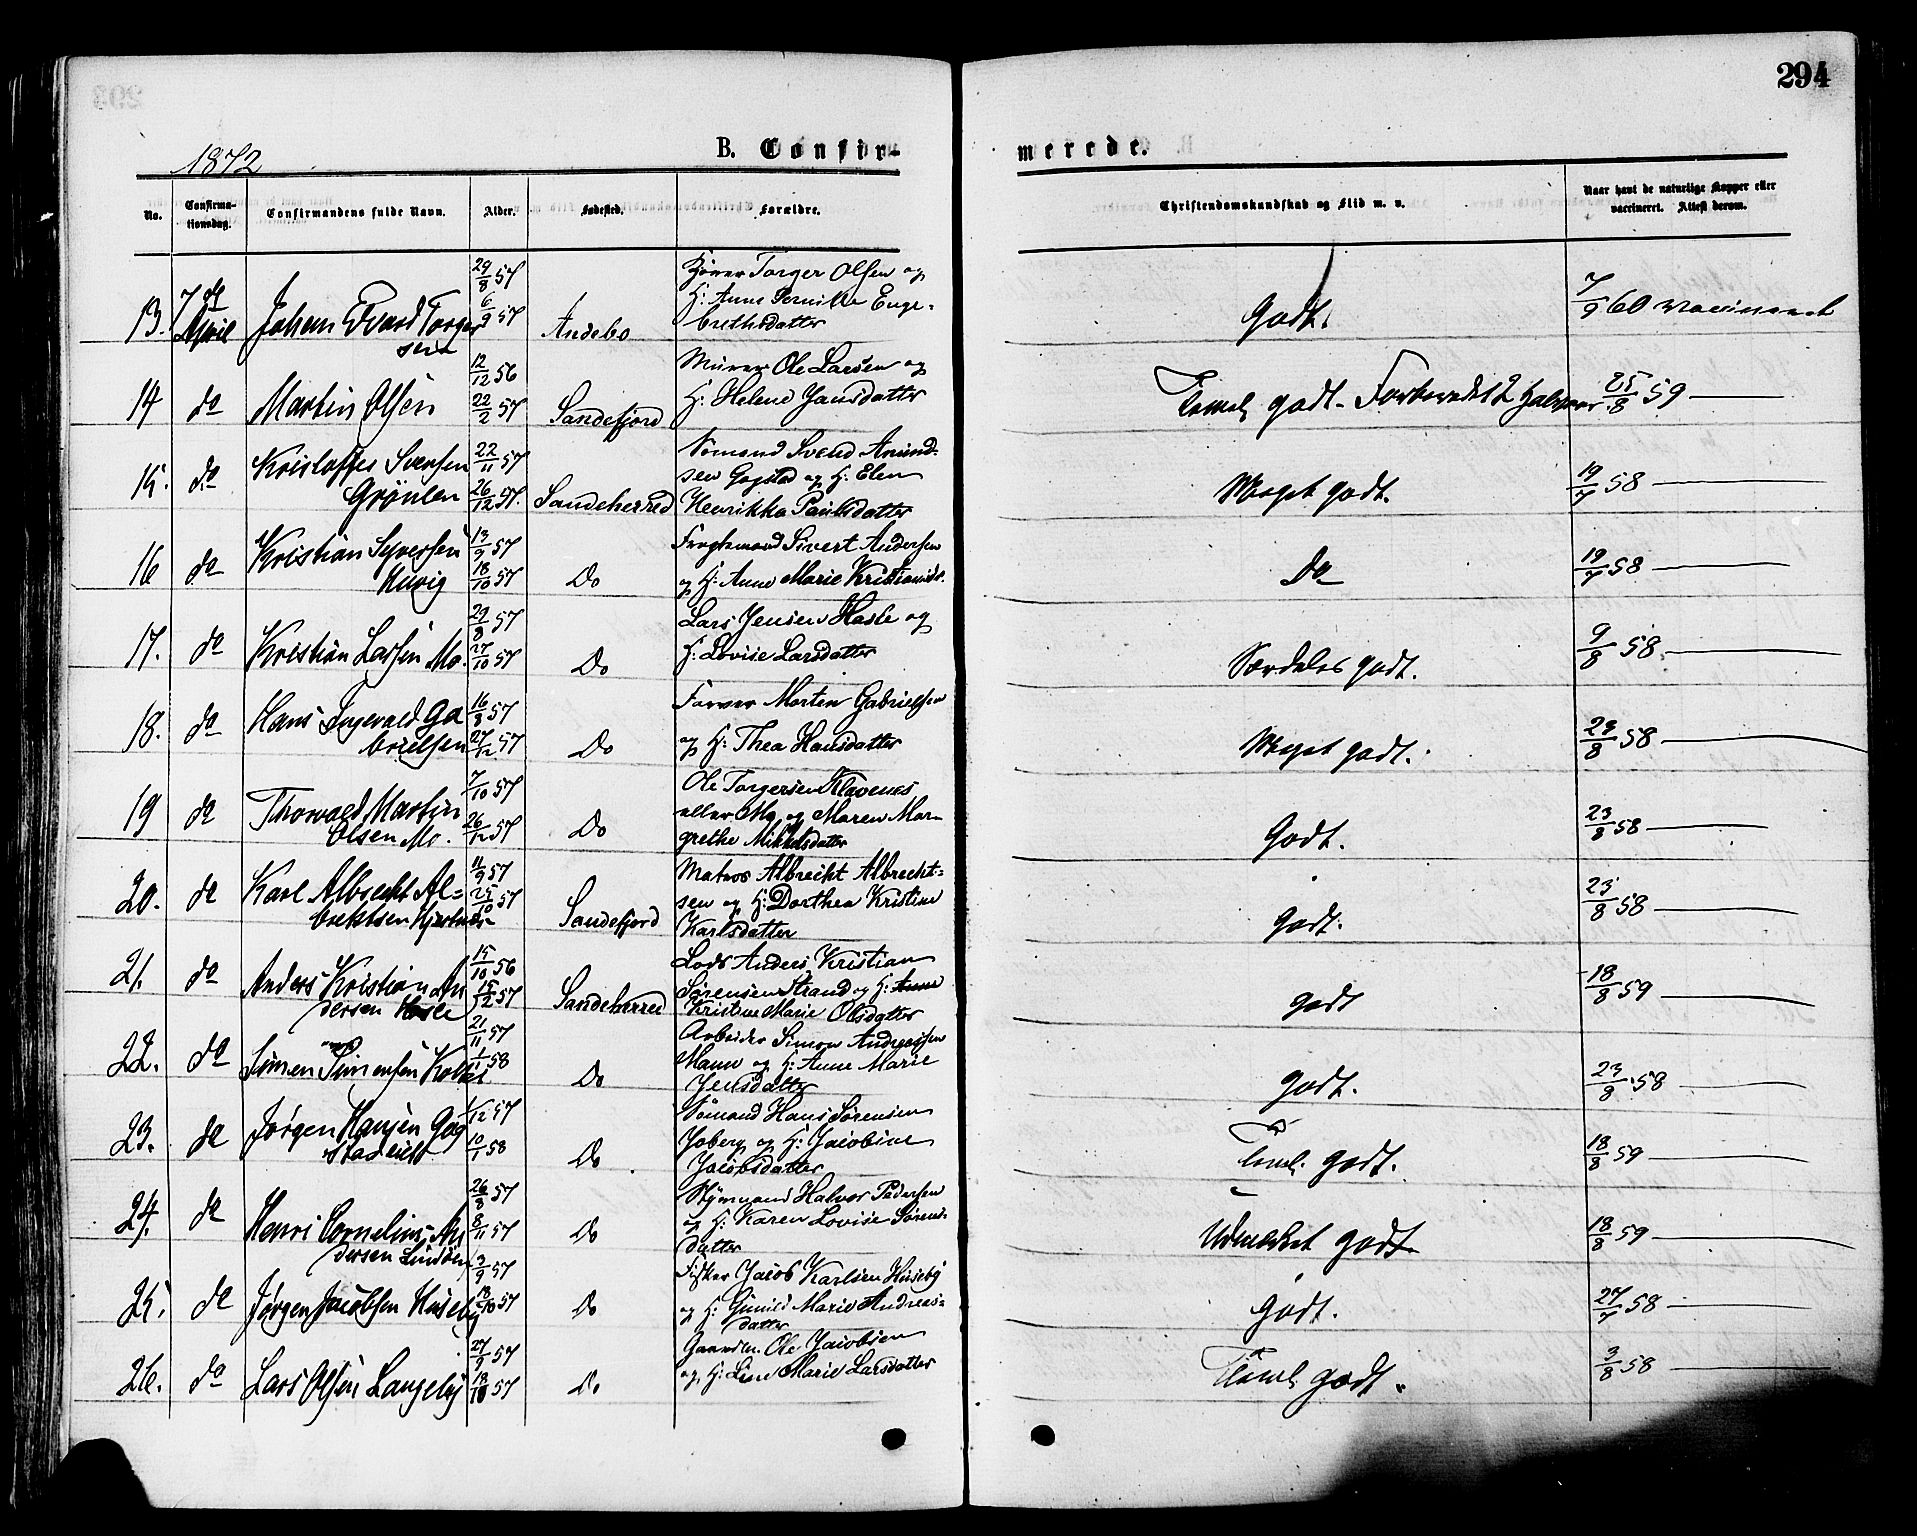 294
1872
B. Confir-
merede.
No.
Confirma-
tionsdag.
Confirmandens fulde Navn.
Alder.
Fødested.
Forældre.
Christendomskundskab og Flid m. v.
Naar havt de naturlige Kopper eller
vaccineret. Attest derom.
13. 7de April
Johan Edvard Torger
sen
29/8 57
6/9 57
Andebo
Torger Olsen og
H: Anne Pernille Enge-
brethsdatter
Godt.
7/9 60 Vaccineret
14 do
Martin Olsen
12/12 56
22/2 57
Sandefjord
Murer Ole Larsen og
H: Helene Jansdatter
Temel. godt. Forberedt 2 Halvaar
25/8 59
15. do
Kristoffer Svensen
Grønlen
22/11 57
26/12 57.
Sandeherred
Sømand Svend Amund-
sen Gogstad og H: Elen
Henrikka Paulsdatter
Meget godt.
19/7 58
16 do
Kristian Syversen
Huvig
13/9 57
18/10 57
Do
Fragtemand Sivert Andersen
og H: Anne Marie Kristiansd.
Do
19/7 58
17. do
Kristian Larsen Mo.
29/8 57
27/10 57
Do
Lars Jensen Hasle og
H: Lovise Larsdatter
Særdeles godt.
9/8 58
18. do
Hans Ingevald Ga
brielsen
16/8 57
27/12 57
Do
Farver Morten Gabrielsen
og H: Thea Hansdatter
Meget godt.
23/8 58
19 do
Thorvald Martin
Olsen Mo.
7/10 57
26/12 57
Do
Ole Torgersen Klavenes
eller Mo og Maren Mar-
grethe Mikkelsdatter
Godt.
23/8 58
20. do
Karl Albrecht Al-
brektsen Hjertnes
11/9 57
25/10 57
Sandefjord
Matros Albrecht Albrecht-
sen og H: Dorthea Kristine
Karlsdatter
godt.
23/8 58
21. do
Anders Kristian An
dersen Hasle
15/10 56
15/2 57
Sandeherred
Lods Anders Kristian
Sørensen Strand og H: Anne
Kristine Marie Olsdatter
godt
18/8 59
22. do
Simen Simensen
21/11 57
1/1 58
Do
Arbeider Simon Andreassen
og H: Anne Marie
Jensdatter
godt.
23/8 58
23. do
Jørgen Hansen Gog
stadeie
/12 57
10/1 58
Do
Sømand Hans Sørensen
og H: Jacobine
Jacobsdatter
Teml. godt.
18/8 59
24. do
Henri Cornelius An
dersen
26/8 57
8/11 57
Do
Styrmand Halvor Pedersen
og H: Karen Lovise Sørens-
datter
Udmerket godt
18/8 59
25. do
Jørgen Jacobsen Huseby
3/9 57
18/10 57
Do
Fisker Jacob Karlsen Huseby
og H: Gunild Marie Andreas-
datter
Godt.
27/7 58
26. do
Lars Olsen Langeby
27/9 57
18/10 57
Do
Gaardbr. Ole Jacobsen
og H: Line Marie Larsdatter
Teml. godt.
3/8 58